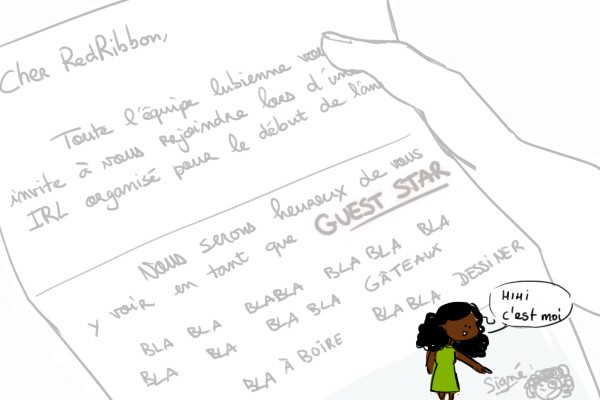 Cher RedRibbon,
Toute l'équipe lubienne vous
invite à nous rejoindre lors d'une
IRL organisé pour le début de l'an
Nous serons heureux de vous
y voir en tant que GUEST STAR
BLA BLA BLABLA BLA BLA BLA
BLA BLA BLA BLA GÂTEAUX
BLA À BOIRE BLA BLA DESSINER
HIHI
c'est moi
Signé :